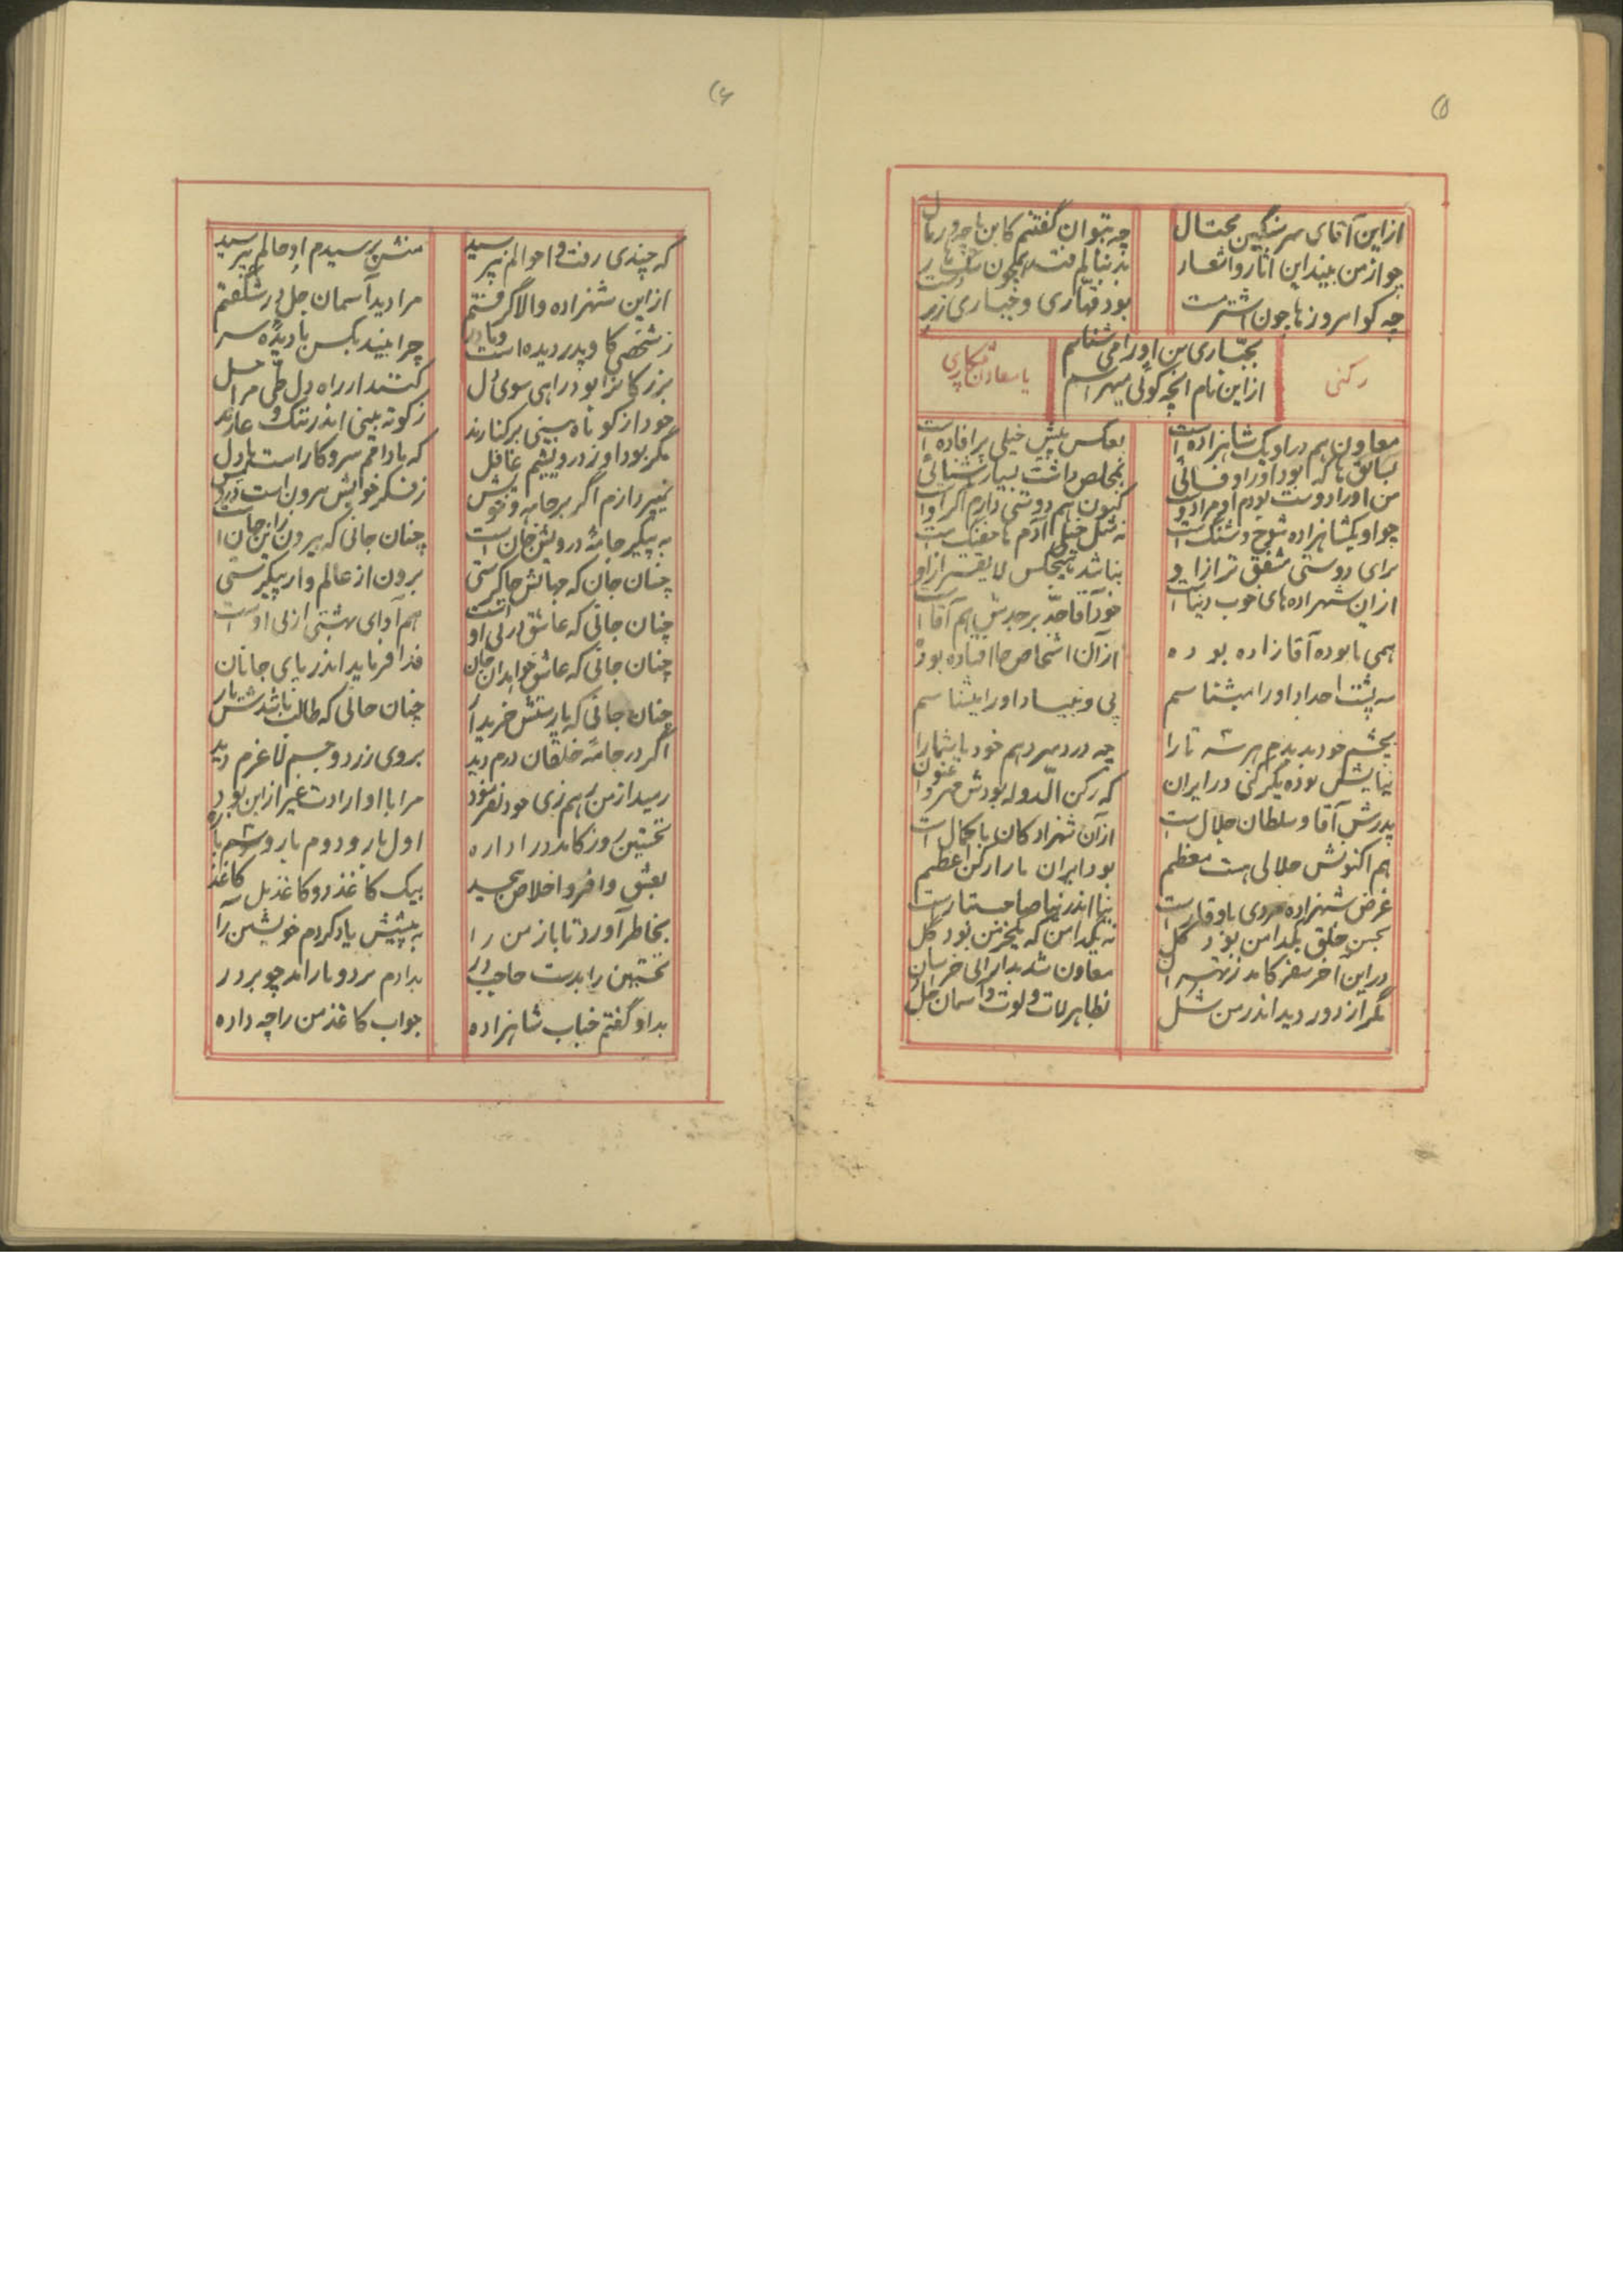 ۵)
ازاین آقای سرسنگین محتال
چه بتوان گفتنم کاین
چو از من بیند این اثار و اشعار
چه کو امروزها چون اشتر است
بود قهاری و جباری
بجباری من او را می شناسم
ازاین نام انچه گوئی میهراسم
رکنی
یا معاون
معاون هم در او یک شاهزاده است
بعکس پیش خیلی پر افاده است
بمخلص داشت بسیار آشنائی
من او را دوست بودم او مرا دوست
کنون هم دوستی دارم اگر اوست
چو او یکشاهزاده شوخ و شنگ است
برای دوستی مشفق تر از او
نباشد هیچکس لایقتر از او
ازان شهزاده های خوب دنیاست
خود آقا جد بر جدش هم آقاست
همی تا بوده آقازاده بوده
ازآن اشخاص
سه پشت اجداد او را میشناسم
پی و بنیاد او را میشناسم
بچشم خود بدیدم هر سه تا را
چه دردسر دهم خود یا شما را
نیایش بوده یکرکنی در ایران
که رکن الدوله بودش مهر و عنوان
پدرش آقا و سلطان جلال است
ازآن شهزادکان با کمال است
هم اکنونش جلالی هست معظم
بود ایران ما را رکن اعظم
غرض شهزاده مردی باوقار است
بحسن خلق یکدامن بود گل
نه یکدامن که یکخرمن بود گل
دراین اخر سفر کامد ز تهران
معاون شد بدارائی خراسان
مگر از دور دید اندر من شل
بظاهر لات و لوت و آسمان جل
۶)
که چندی رفت و احوالم نپرسید
منش پرسیدم او حالم نپرسید
ازاین شهزاده والاگرفتم
مرا دید آسمان جل در شگفتم
ز شخصی کاو پدر دیده است و مادر
چرا بیند بکس با دیده سر
بزرکانرا بود راهی سوی دل
کنند از راه دل طی مراحل
خود از کوتاه بینی برکنارند
ز کوته بینی اندر ننگ و عارند
مگر بود او ز درویشیم غافل
که با دلقم سر و کار است یا دل
نمیپردازم اگر بر جامه خویش
به پیکر جامه درویش جان است
چنان جانی که بیرون زاین جهان است
چنان جان که جهانش چاکرستی
برون از عالم وار پیکرستی
چنان جانی که عاشق در پی اوست
چنان جانی که عاشق خواهد آن جان
فدا فرماید اندر پای جانان
چنان جانی که یارستش خریدار
چنان جانی که طالب باشدش یار
اگر در جامه خلقان درم دید
بروی زرد و جسم لاغرم دید
رمید از من رهم زی خود نفرمود
مرا با او ارادت غیر از این بود
نخستین روز کامد در اداره
اول بار و دوم بار و سیم باره
بعشق وافر و اخلاص بیحد
بیک کاغذ دو کاغذ بل
بخاطر آورد تا باز من را
به پیشش یاد کردم خویشتن را
نخستین را بدست حاجب در
بدادم برد و باز امد چو بر در
بداو گفتم جناب شاهزاده
جواب کاغذ من را چه داده